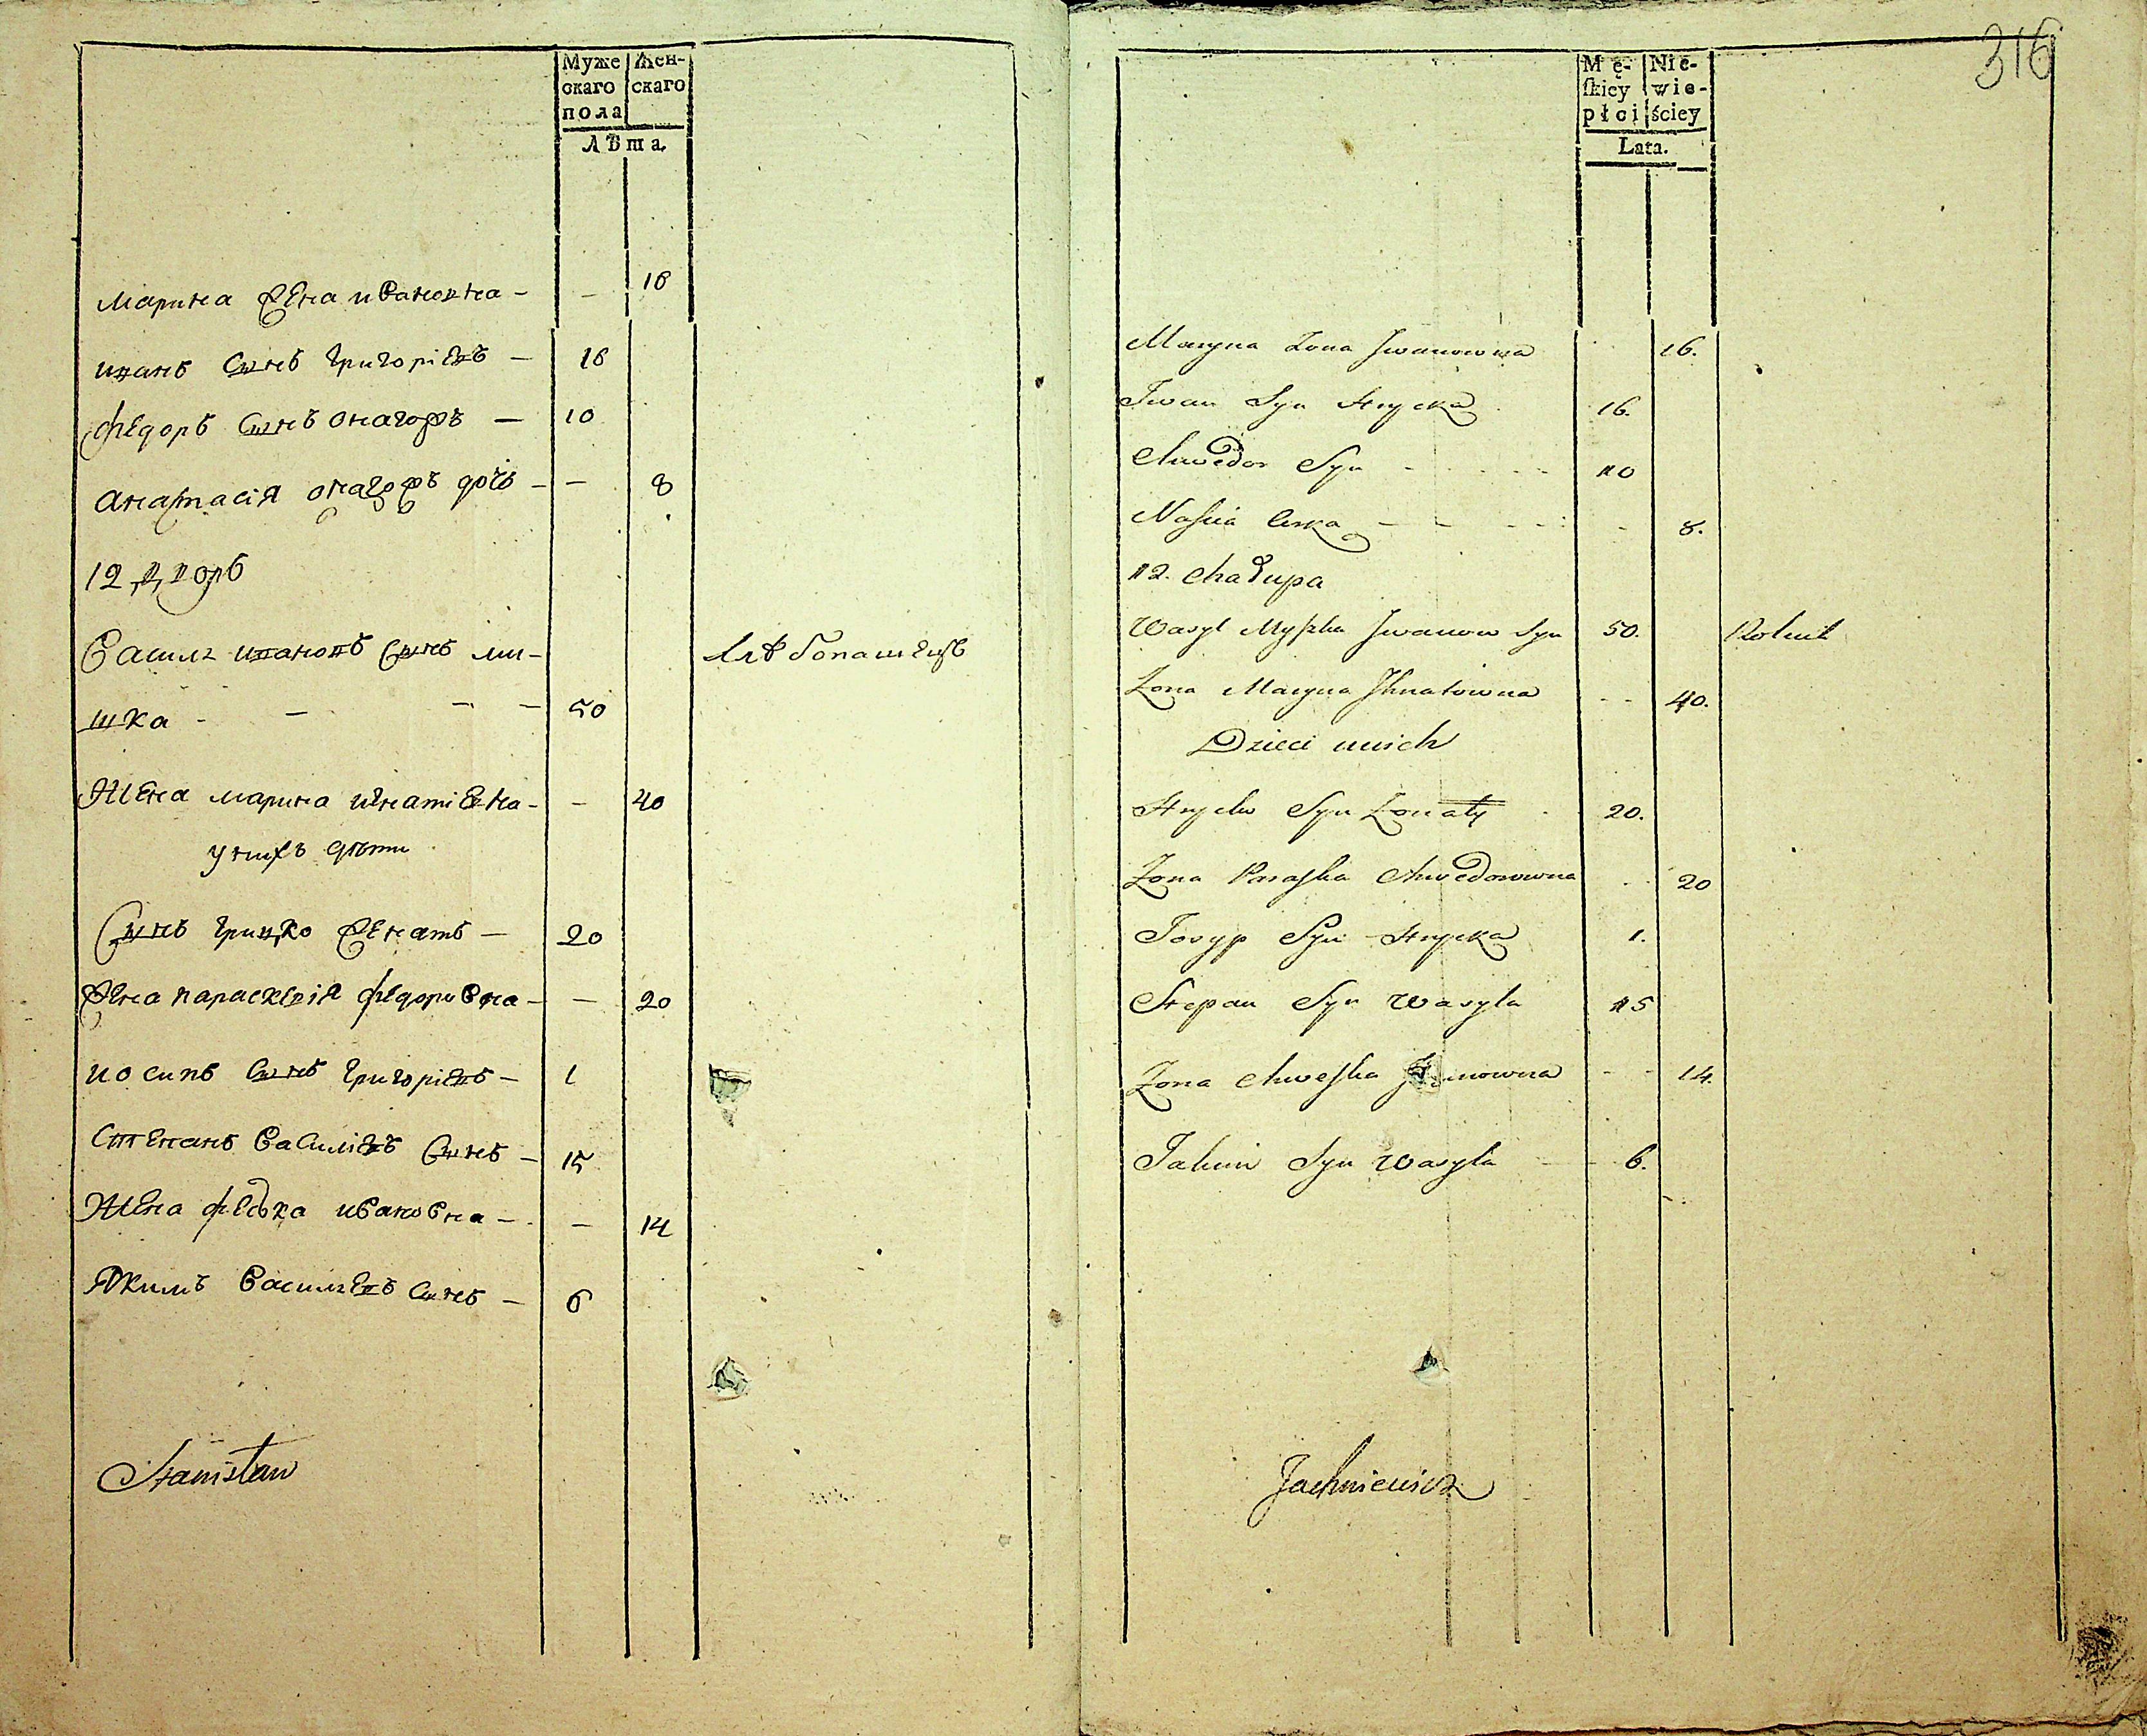 316
Муже Жен-
скаго скаго
пола
Лѣта.
Марина жена ивановна - - 16
иванъ сынъ григоріевъ - 16
Федоръ сынъ онагожъ - 10
Анастасія онагожъ дочь - - 8
12 дворъ
Василь ивановъ сынъ ми-
шка - - - - 50
хлѣбопашецъ
Жена марина игнатіевна - - 40
у нихъ дѣти
Сынъ грицко женатъ - 20
Жена параскевія федоривна - - 20
иосипъ сынъ григоріевъ - 1
Степанъ василіевъ сынъ - 15
Жена феська ивановна - - 14
Якимъ васильевъ сынъ - 6
Stanisław
Mę- Nie-
ſkiey wie-
płci ściey
Lata.
Maryna Zona Jwanowna 16.
Iwan Syn Hrycka 16.
Chwedor Syn - - - - 10
Nascia Curka - - - - 8.
12. Chałupa
Wasyl Myszka Jwanow Syn 50. Rolnik
Zona Maryna Jhnatowna - - 40.
Dzieci unich
Hrycko Syn Zonaty 20.
Zona Paraska Chwedorowna - - 20
Josyp Syn Hrycka 1.
Stepan Syn Wasyla 15
Zona Chweska Jwanowna - - 14.
Jakim Syn Wasyla - - 6.
Jachniewicz